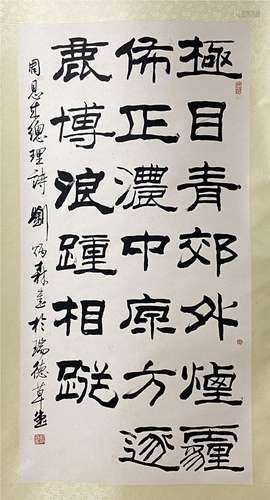 極目青郊外煙霾
佈正濃中原方逐
鹿博浪踵相蹤
周恩来總理詩 劉炳森書於瑞德草堂